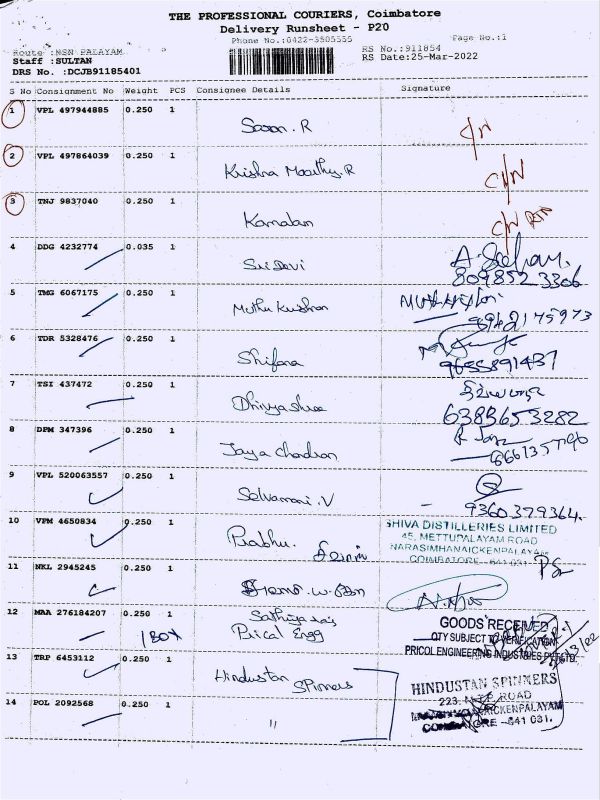 THE PROFESSIONAL COURIERS, Coimbatore
Delivery Runsheet - P20
Phone No.:0422-3505555 Page No.:1
Route :NSN PALAYAM RS No.:911854
Staff :SULTAN RS Date:25-Mar-2022
DRS No. :DCJB91185401
S No Consignment No Weight PCS Consignee Details Signature
1 VPL 497944885 0.250 1
2 VPL 497864039 0.250 1 Krishna Moorthy.R
3 TNJ 9837040 0.250 1 Kamalam
4 DDG 4232774 0.035 1 Sri Devi
8098523306
5 TMG 6067175 0.250 1 Muthu Krishnan
6 TDR 5328476 0.250 1 Shifana
9655891437
7 TSI 437472 0.250 1 Dhivyashree
6383653282
8 DPM 347396 0.250 1 Jaya chandran
9 VPL 520063557 0.250 1 Selvamani.V
9360379364.
10 VPM 4650834 0.250 1 Prabhu.
SHIVA DISTILLERIES LIMITED
45, METTUPALAYAM ROAD
NARASIMHANAICKENPALAYAM
COIMBATORE - 641 031.
11 NKL 2945245 0.250 1
12 MAA 276184207 0.250 1 Pricol Engg
1 BOX
GOODS RECEIVED
QTY SUBJECT TO VERIFICATION
PRICOL ENGINEERING INDUSTRIES
13 TRP 6453112 0.250 1 Hindustan Spinners
HINDUSTAN SPINNERS
223, M.T.P. ROAD
COIMBATORE - 641 031.
14 POL 2092568 0.250 1 "